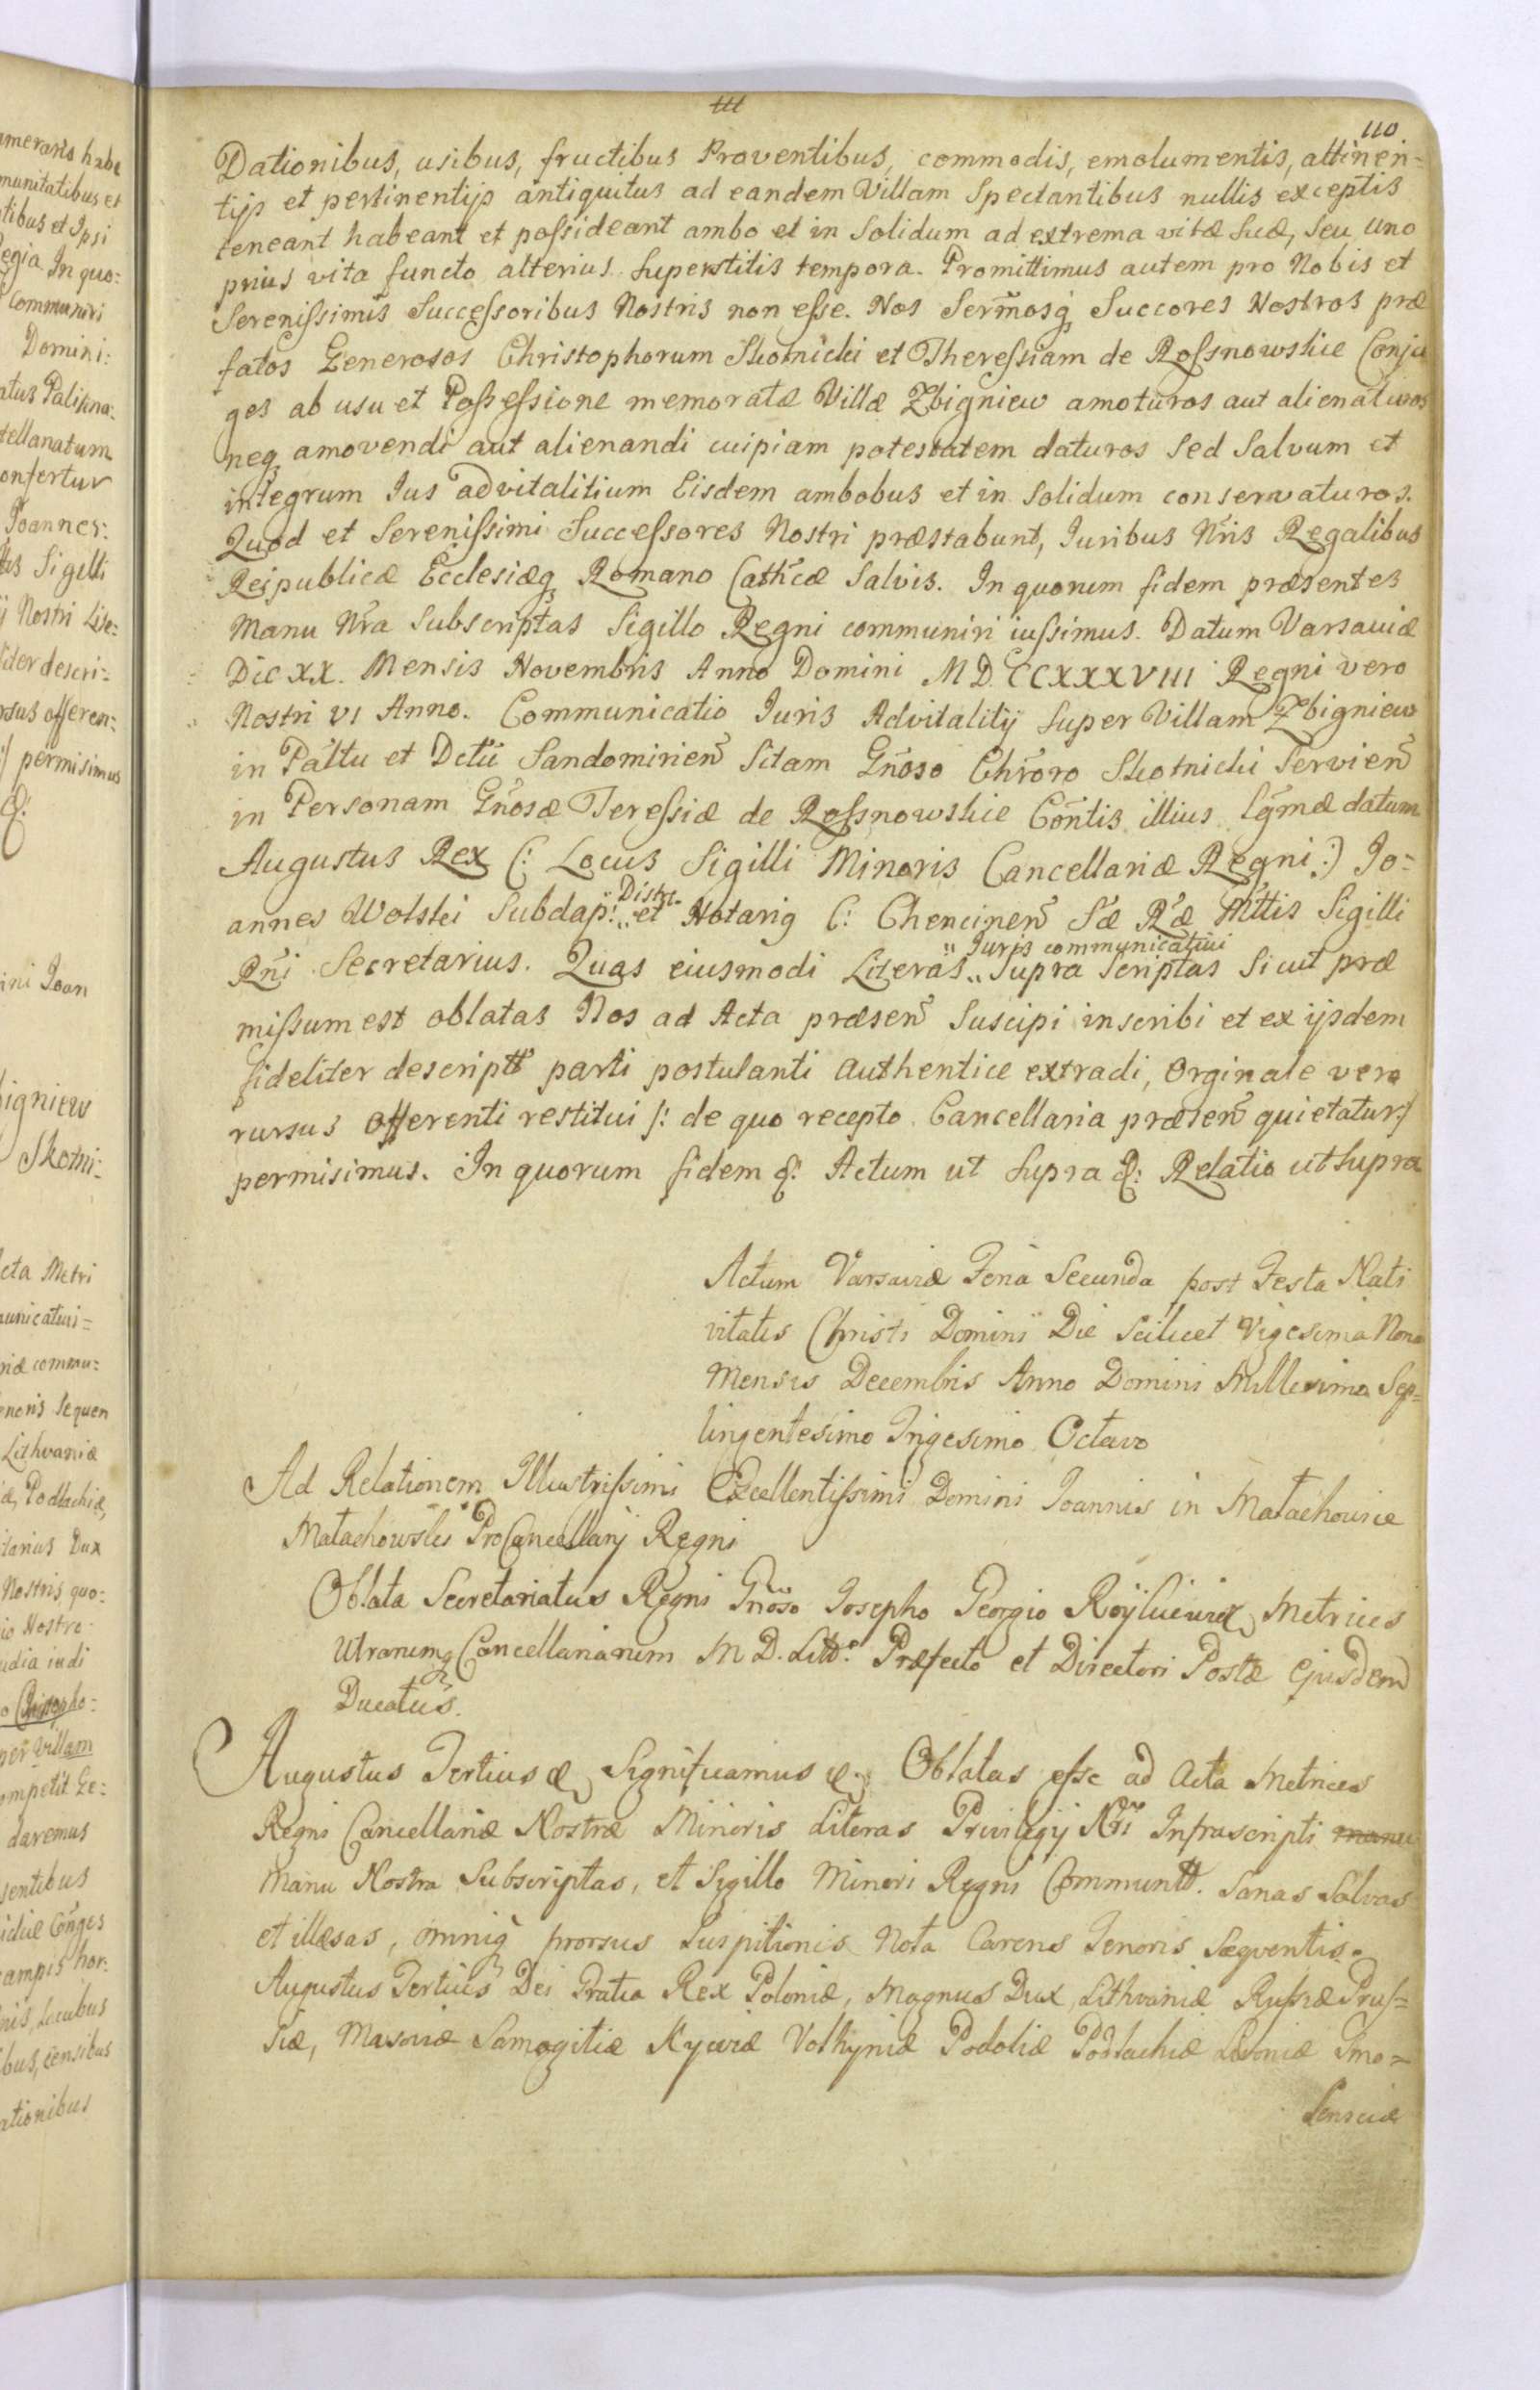 110
Dationibus, usibus, fructibus Proventibus, commodis, emolumentis, attinen=
tijs et pertinentijs antiquitus ad eandem Villam Spectantibus nullis exceptis
teneant habeant et possideant ambo et in Solidum ad extrema vitæ suæ, seu uno
prius vita functo alterius superstitis tempora. Promittimus autem pro Nobis et
Serenissimis Successoribus Nostris non esse. Nos Serm̃osq Succores Nostros præ
fatos Generosos Christophorum Skotnicki et Theressiam de Rossnowskie Conju
ges ab usu et Possessione memoratæ Villæ Zbigniew amoturos aut alienaturos
neq amovendi aut alienandi cuipiam potestatem daturos sed Salvum et
integrum Jus advitalitium Eisdem ambobus et in Solidum conservaturos.
Quod et Serenissimi Successores Nostri præstabunt, Juribus Nr̃is Regalibus
Reipublicæ Ecclesiæq Romano Cathcæ Salvis. In quorum fidem præsentes
Manu Nr̃a Subscriptas Sigillo Regni communiri iussimus. Datum Varsaviæ
Die XX. Mensis Novembris Anno Domini MDCCXXXVIII Regni vero
Nostri VI Anno. Communicatio Juris Advitalitÿ super Villam Zbigniew
in Paltu et Dctũ Sandomirien̄ Sitam Gñoso Chr̃oro Skotnicki Servien̄
in Personam Gñosæ Teressiæ de Rossnowskie Cõntis illius lg̃mæ datum
Augustus Rex (: Locus Sigilli Minoris Cancellariæ Regni :) Jo=
annes Wolski Subdap: „Distr. et Notarig C: Chencinen̄ Sæ Ræ Mttis Sigilli
Rñi Secretarius. Quas eiusmodi Literas „Juris communicativi „Supra Scriptas Sicut præ
missum est oblatas Nos ad Acta præsen̄ Suscipi inscribi et ex ijsdem
fideliter descriptt parti postulanti authentice extradi, Orginale vero
rursus offerenti restitui /: de quo recepto Cancellaria præsen̄ quietatur :/
permisimus. In quorum fidem &: Actum ut supra &: Relatio ut supra
Actum Varsaviæ Feria Secunda post Festa Nati
vitatis Christi Domini Die scilicet Vigesima Nona
Mensis Decembris Anno Domini Millesimo Sep=
tingentesimo Trigesimo Octavo
Ad Relationem Illustrissimi Excellentissimi Domini Joannis in Małachowice
Małachowski ProCancellarij Regni
Oblata Secretariatus Regni Gñoso Josepho Georgio Metrices
Utrarumq Cancellariarum M. D. Litt: Præfecto et Directori Postæ ejusdem
Ducatus.
Augustus Tertius & Significamus &. Oblatas esse ad Acta Metrices
Regni Cancellariæ Nostræ Minoris Literas Privilegij Nr̃i Infrascripti manu
manu Nostra Subscriptas, et Sigillo Minori Regni Communtt. Sanas Salvas
et illæsas, omniq prorsus Suspitionis Nota Carens Tenoris Sæqventis.
Augustus Tertius Dei Gratia Rex Poloniæ, Magnus Dux Lithvaniæ Russiæ Prus=
siæ, Masoviæ Samogitiæ Kyoviæ Volhyniæ Podoliæ Podlachiæ Livoniæ Smo=
lensciæ